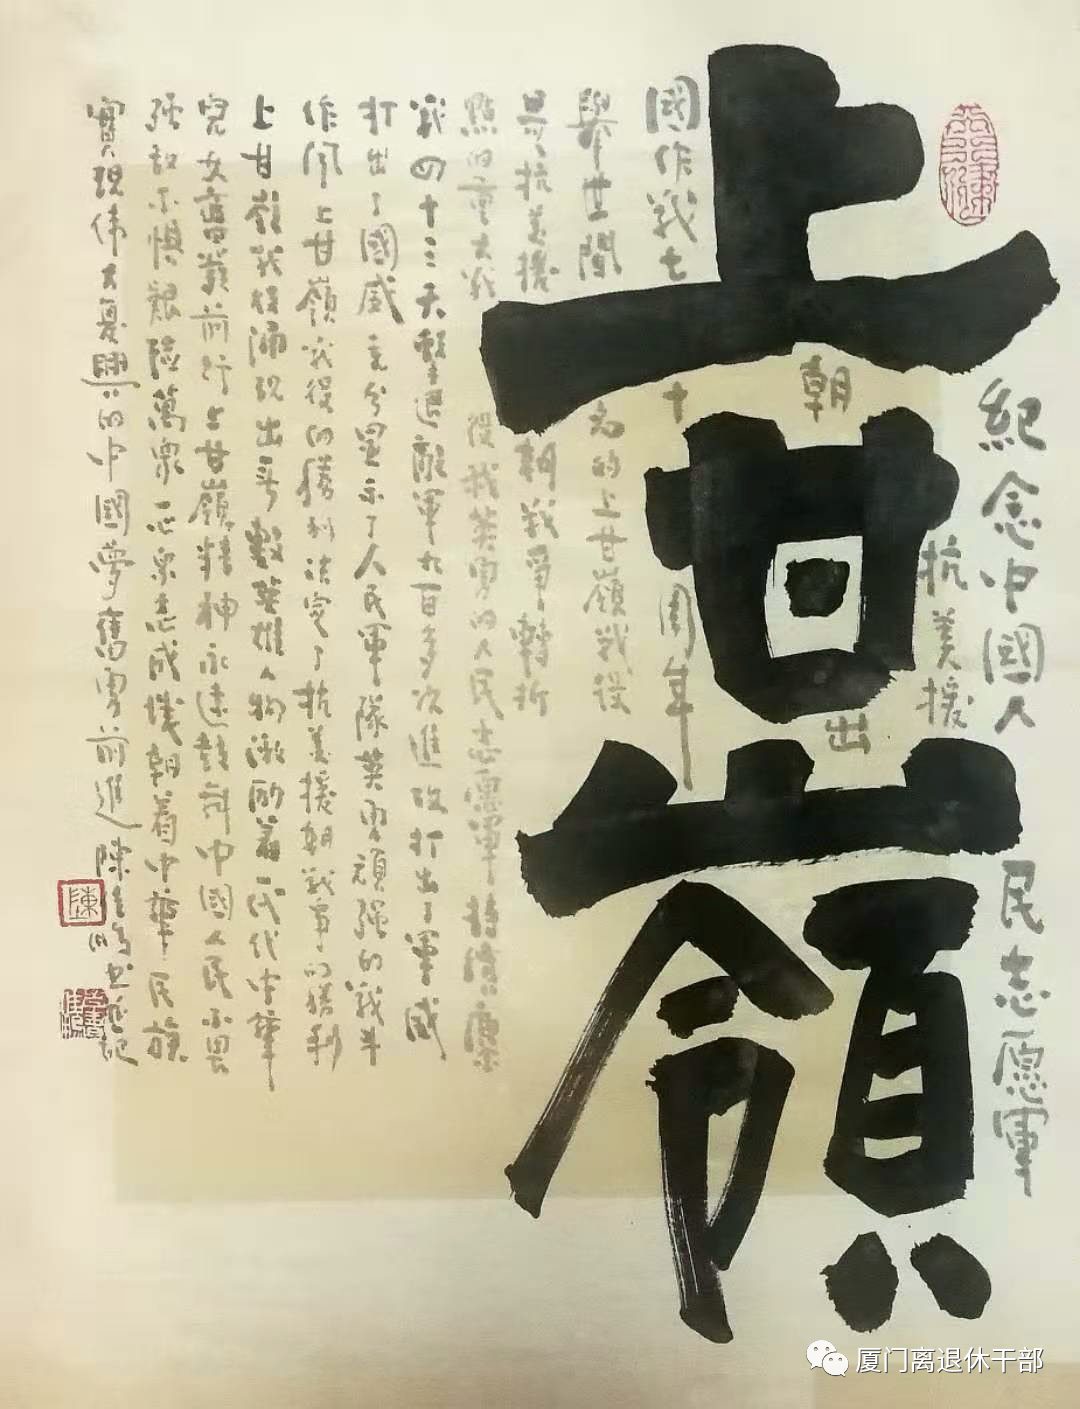 上甘嶺
紀念中國人民志愿軍
抗美援
朝出
國作戰七十周年
舉世聞名的上甘嶺戰役
是抗美援朝戰爭轉折
點的重大戰役我英勇的人民志愿軍
戰四十三天擊退敵軍九百多次進攻打出了軍威
打出了國威充分显示了人民軍隊英勇頑强的戰斗
作風上甘嶺戰役的勝利決定了抗美援朝戰争的勝利
上甘嶺戰役涌現出無數英雄人物激励着一代代中華
兒女奮發前行上甘嶺精神永遠鼓舞中國人民不畏
强敌不惧艱險萬眾一心眾志成城朝着中華民族
實現偉大復興的中國夢奮勇前進陳
陳
厦门离退休干部